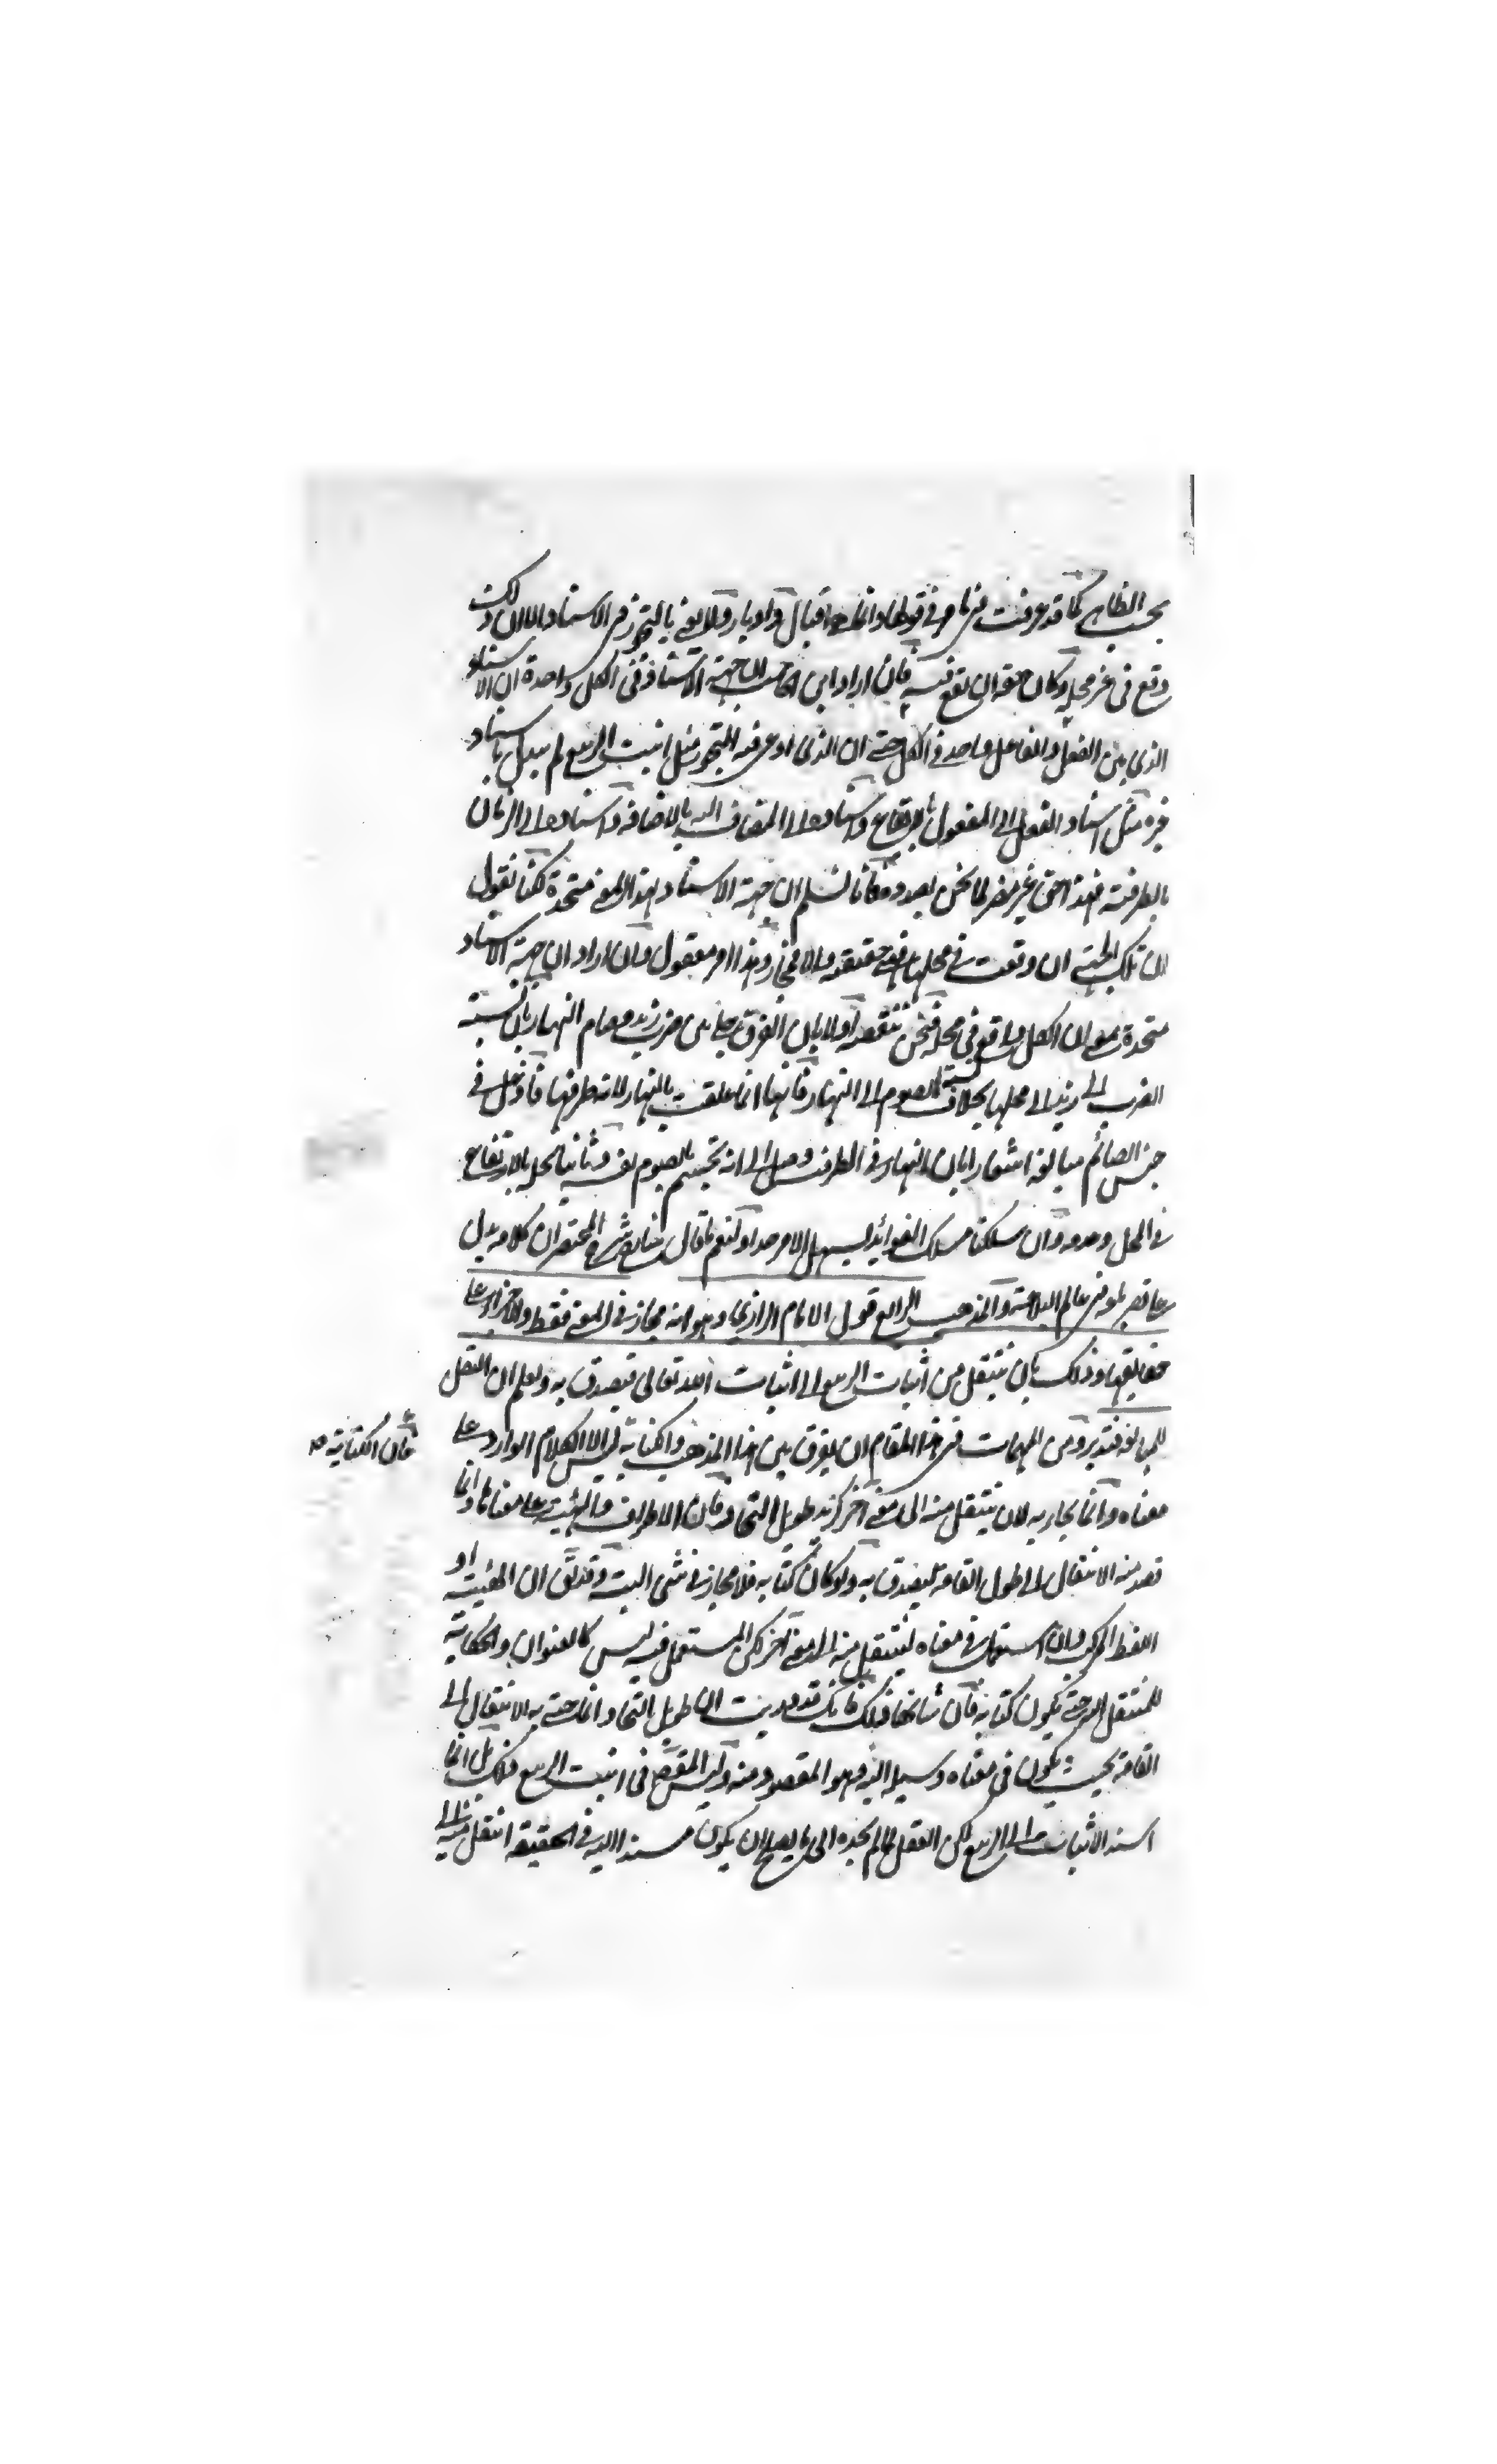 بحسب الظاهر كما قد عرفت من مامر في قولها وانما هي اقبال وادبار ولا نعني بالتجوز في الاسناد الا ان ذلك
وقع في غير محله وكان حقه ان يقع فيه فان اراد ابن الحاجب ان جهة الاسناد في الكل واحدة ان الاسناد
الذي بين الفعل والفاعل واحد في الكل حتى ان الذي ادعى فيه التجوز مثل انبت الربيع لم يبدل باسناد
غيره مثل اسناد الفعل الى المفعول بالايقاع واسناده الى المضاف اليه بالاضافة واسناده الى الزمان
بالظرفية فهذا حق غير مضر لما نحن بصدده فانا نسلم ان جهة الاسناد بهذا المعنى متحدة لكنا نقول
ان تلك الجهة ان وقعت في محلها فهي حقيقة والا فمجاز وهذا امر معقول وان اراد ان جهة الاسناد
متحدة بمعنى ان الكل واقع في محله فنحن ننقضه اولا بان الفرق جلي بين ضرب زيد وصام النهار بان نسبة
الضرب الى زيد الى محلها بخلاف نسبة الصوم الى النهار فانها انما علقت بالنهار لانه ظرفها فادخل في
جنس الصائم مبالغة اشعارا بان النهار في الظرف وصل الى انه تجسم بالصوم نفسه وثانيا نحله بالارتفاع
في المحل وعدمه وان سلكنا مسلك الفوائد ليسهل الامر جدا ولنعم ما قال شارح المختصر ان كلامه يدل
على قصر بلوغه في عالم البلاغة والمذهب الرابع قول الامام الرازي وهو انه مجاز في المعنى فقط والاجزاء على
حقايقها وذلك بان ينتقل من انبات الربيع الى انبات الله تعالى فيصدق به ويعلم ان النقل
للمبالغة فتدبر ومن المهمات في هذا المقام ان يفرق بين هذا المذهب والكناية ليس الا الكلام الوارد على
فان الكناية صح
معناه وانما يجاء به لان ينتقل منه الى معنى آخر كزيد طويل النجاد فان الاطراف والهيئة على معناها وانما
قصد منه الانتقال الى طول القامة ليصدق به ولو كان كناية فلا مجاز في شئ البتة وقد يق ان الهيئة او
اللفظ المركب وان استعمل في معناه لينتقل منه الى معنى آخر لكن المستعمل فيه ليس كالعنوان والحكاية
للمنتقل اليه حتى يكون كناية فان شانها ذلك فانك قد دريت ان طويل النجاد انما جئ به للانتقال الى
القامة بحيث يكون في معناه وسيلة اليه وهو المقصود منه وليس المقصود في انبت الربيع ذلك بل انما
اسند الانبات الى الربيع لكن العقل لما لم يجده الى ما يصلح ان يكون مسندا اليه في الحقيقة انتقل منه الى